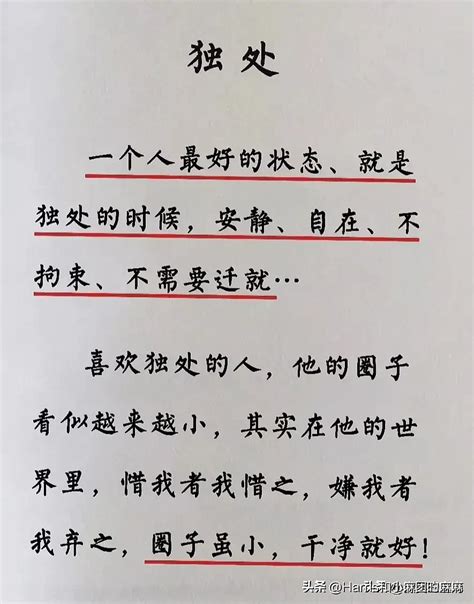 独处
一个人最好的状态、就是
独处的时候，安静、自在、不
拘束、不需要迁就…
喜欢独处的人，他的圈子
看似越来越小，其实在他的世
界里，惜我者我惜之，嫌我者
我弃之，圈子虽小，干净就好！
头条 @